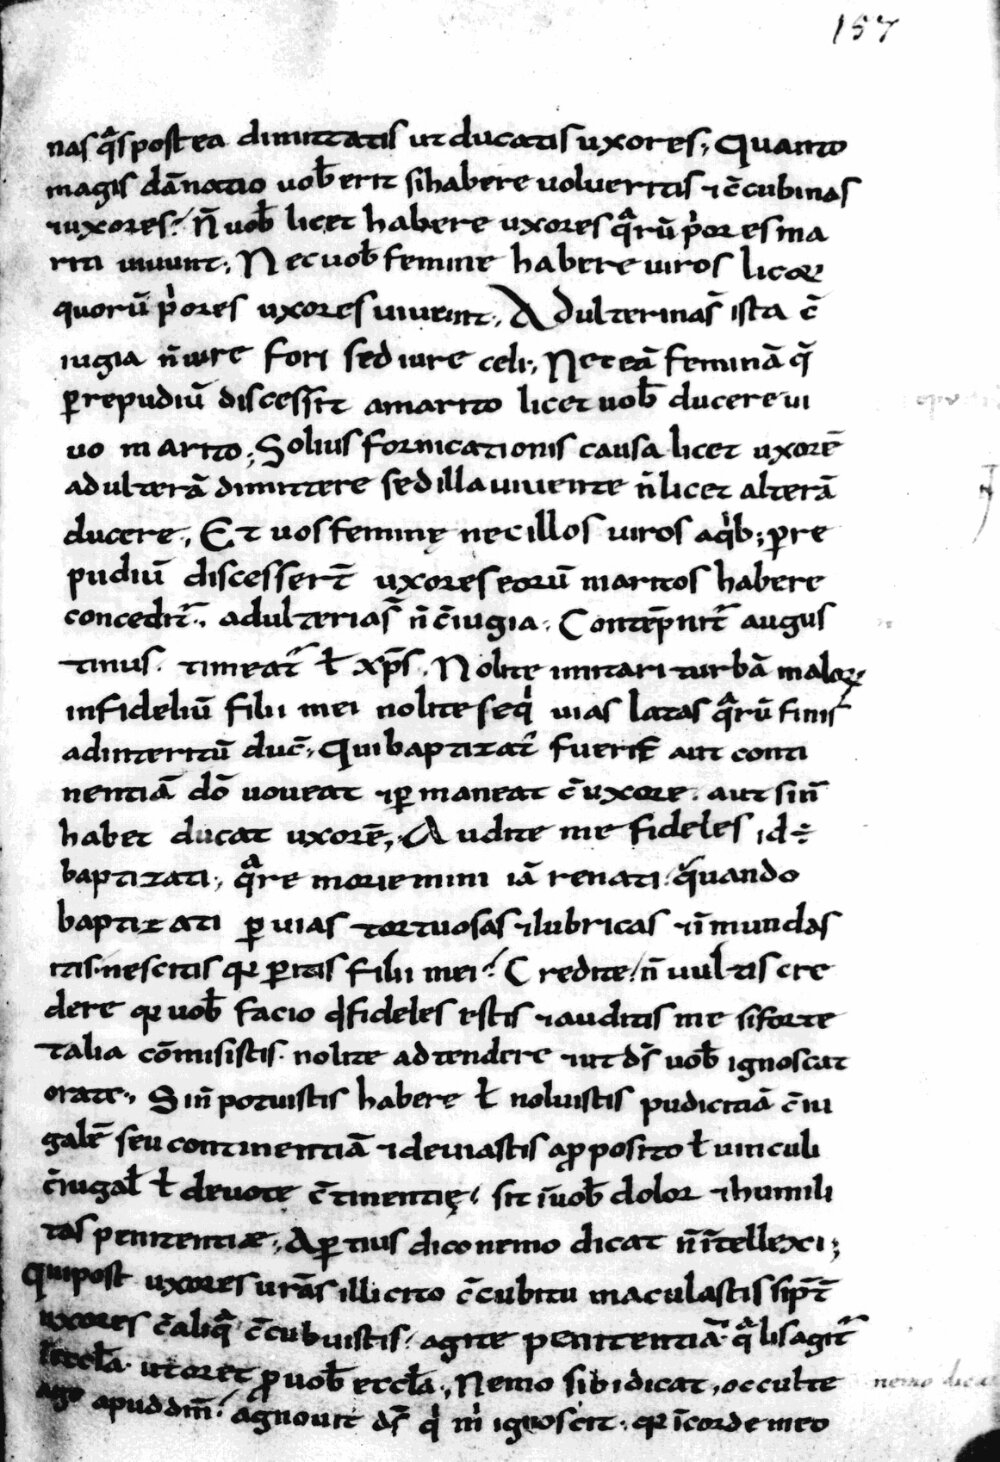 157
nas q̃s postea dimittatis ut ducatis uxores; Quanto
magis dānatio uob̄ erit si habere uolueritis & c̄cubinas
& uxores; n̄ uob̄ licet habere uxores q̃rū p̄ores ma
riti uiuunt; Nec uob̄ femine habere uiros licꝫ
quorū p̄ores uxores uiuunt; Adulterina s̄ ista c̄
iugia n̄ iure fori sed iure celi; Nec eā feminā q̄
ꝑ repudiū discess̄it a marito licet uob̄ ducere ui
uo marito; Solius fornicationis causa licet uxorē
adulterā dimittere sed illa uiuente n̄ licet alterā
ducere; Et uos feminę nec illos uiros a qib; ꝑ re
pudiū discesser̄t uxores eorū maritos habere
concedit̄; adulteria s̄ n̄ c̄iugia; Contēpnit̄ augus
tinus. timeat̄ ł xp̄s. Nolite imitari turbā maloꝝ
infideliū filii mei nolite seq̇ uias latas q̃rū finis
ad interitū duc̄; Qui baptizat̄ fuerit aut conti
nentiā dō uoueat & ꝑmaneat c̄ uxore. aut si n̄
habet ducat uxorē; Audite me fideles id÷
baptizati; q̃re moriemini iā renati quando
baptizati ꝑ uias tortuosas & lubricas & īmundas
itis. nescitis qꝛ ꝑitis filii mei? Credite n̄ uultis cre
dere qꝛ uob̄ facio qđ fideles estis & auditis me si forte
talia cōmisistis. nolite adtendere & ut d̄s uob̄ ignoscat
orate; Si n̄ potuistis habere ł noluistis pudicitiā c̄iu
galē seu continentiā & deuiastis a ꝓposito ł uinculi
c̄iugał ł deuote c̄tinentię sit ī uob̄ dolor & humili
tas penitentiæ; Aꝑtius dico nemo dicat n̄ ītellexi;
Qui post uxores ur̄as illicito c̄cubitu maculastis si p̄t̄
uxores c̄ aliq̃ c̄cubuistis. agite penitentiā. q̃lis agit̄
ī eccła. ut oret ꝓ uob̄ eccła; Nemo sibi dicat, occulte
ago apud dm̄. agnouit d̄s q̇ m̄ ignoscit. qꝛ ī corde meo
nemo dicat